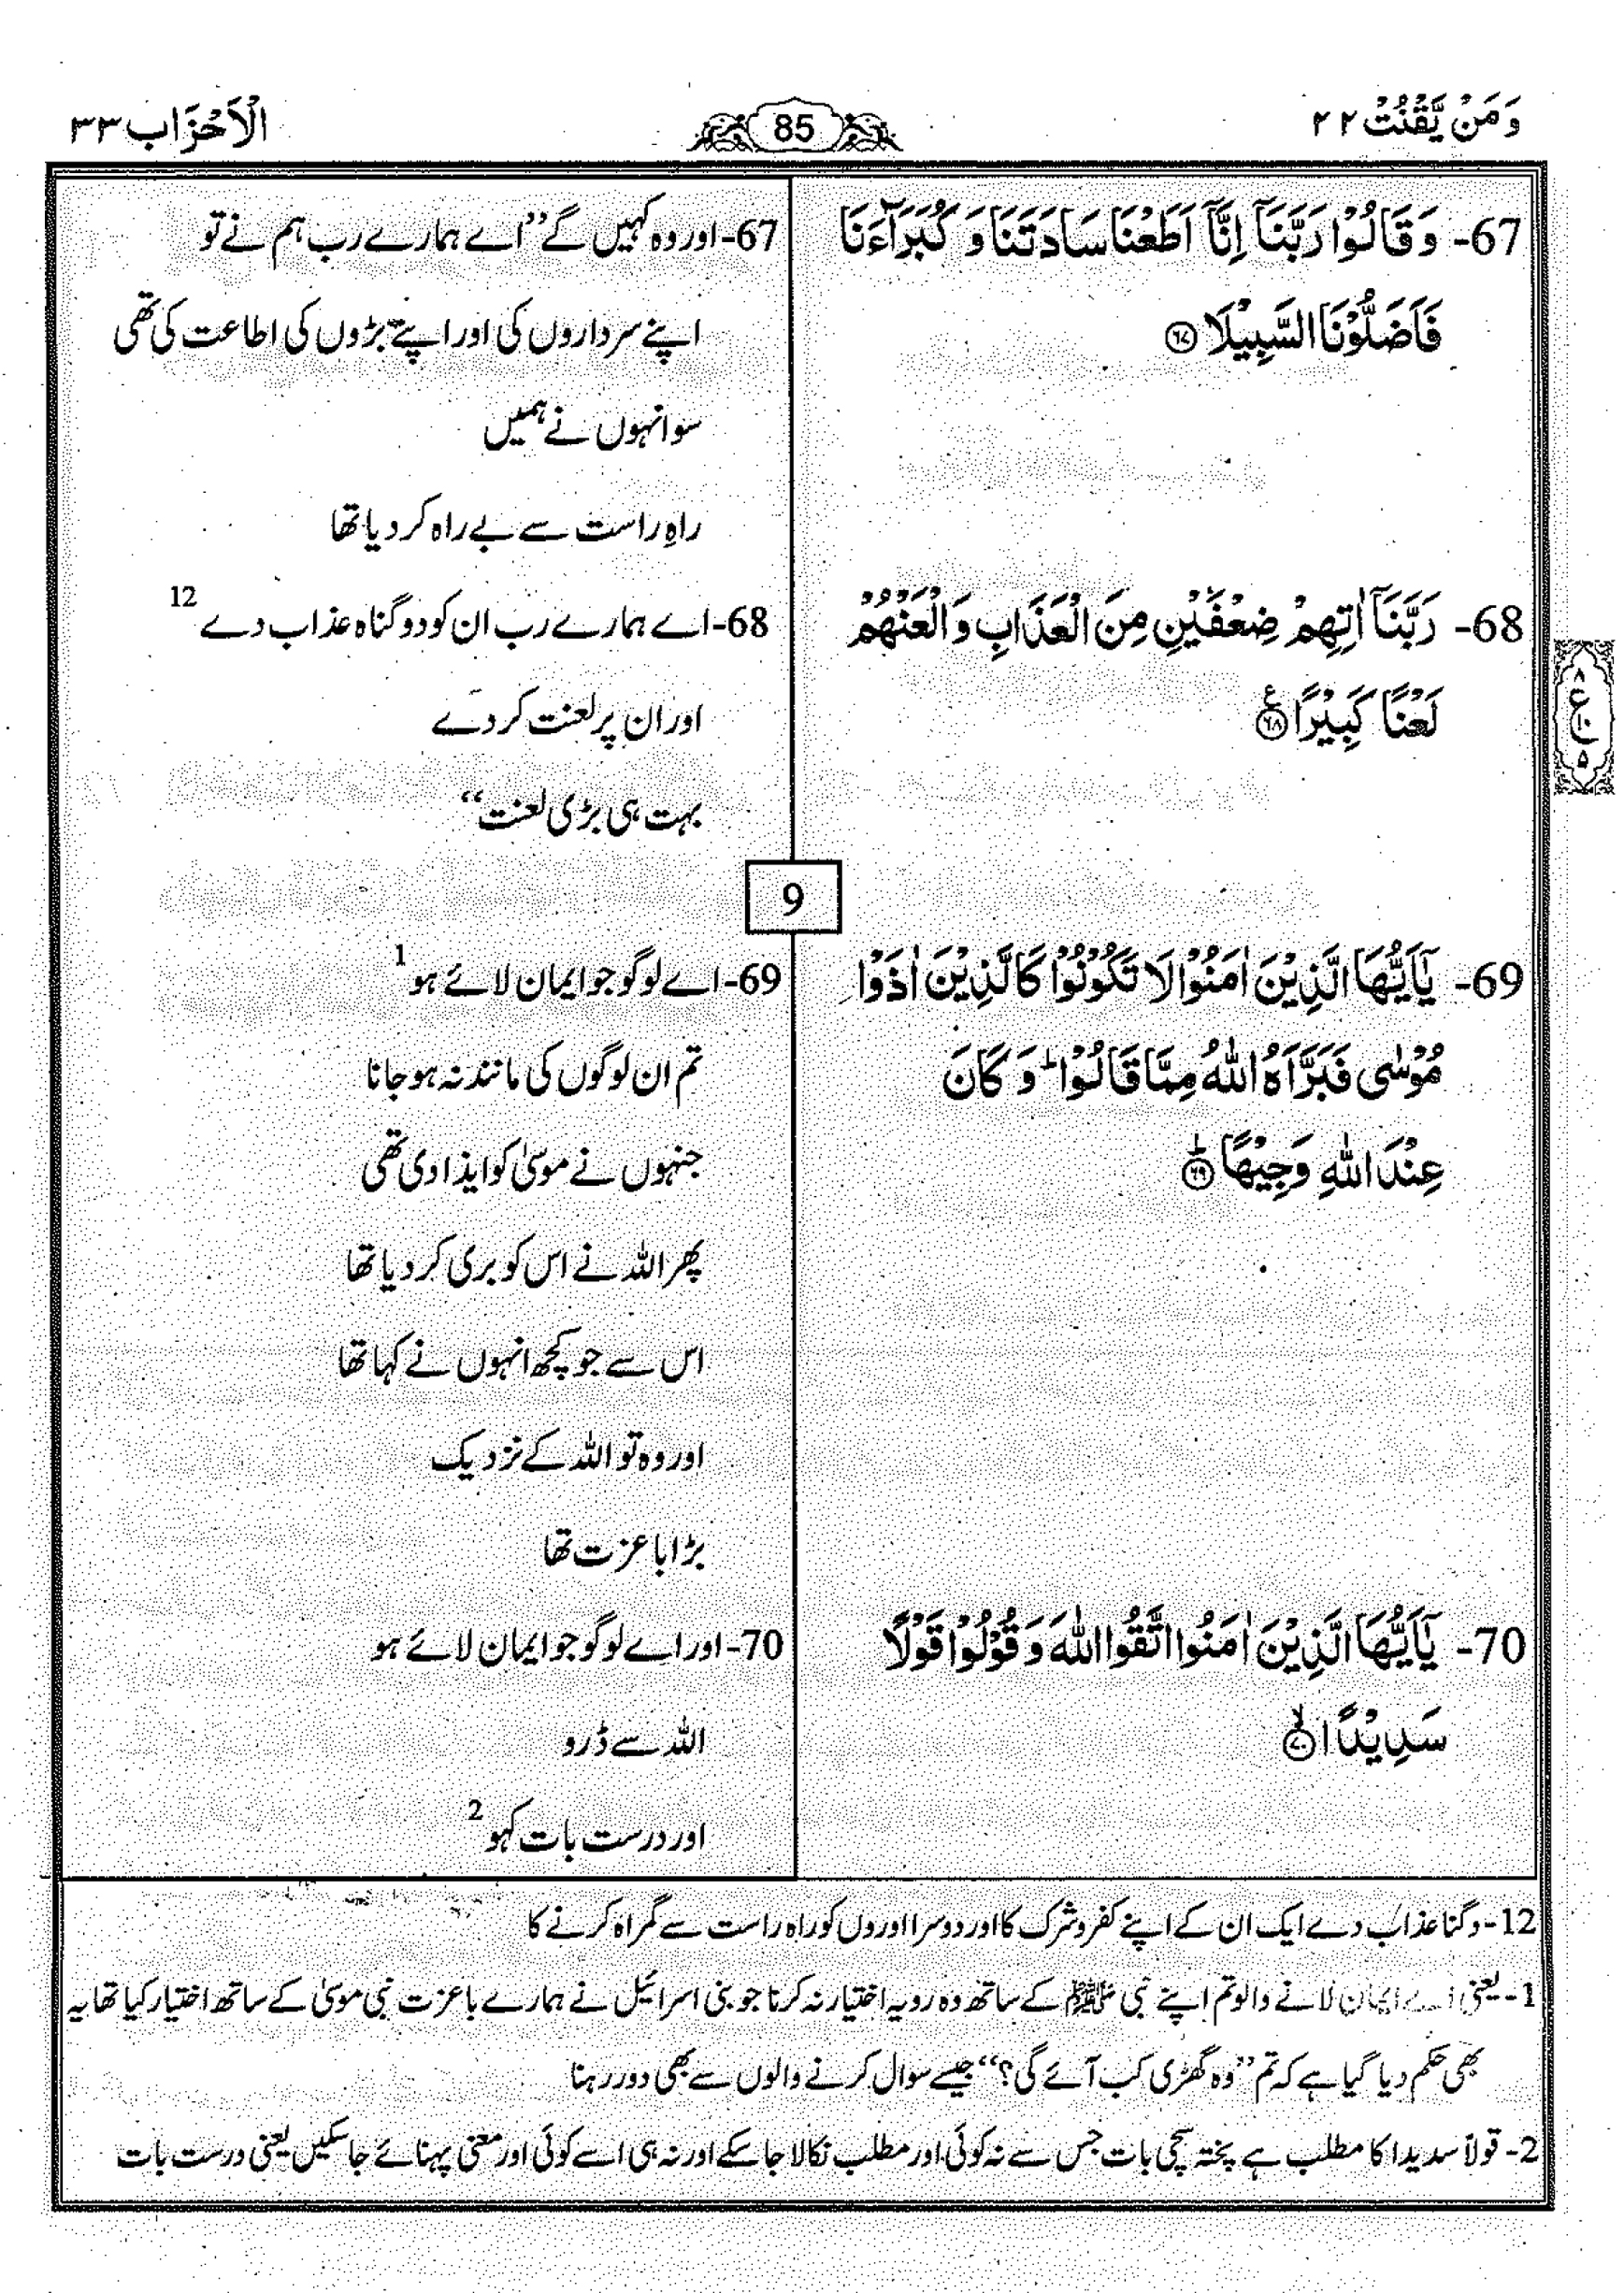 وَمَنْ يَّقْنُتْ ٢٢
85
الْاَحْزَاب ٣٣
67- وَقَالُوْا رَبَّنَاۤ اِنَّاۤ اَطَعْنَا سَادَتَنَا وَ كُبَرَآءَنَا
فَاَضَلُّوْنَا السَّبِيْلَا ﴿٦٧﴾
67-اور وہ کہیں گے ”اے ہمارے رب ہم نے تو
اپنے سرداروں کی اور اپنے بڑوں کی اطاعت کی تھی
سو انہوں نے ہمیں
راہِ راست سے بے راہ کر دیا تھا
68- رَبَّنَاۤ اٰتِهِمْ ضِعْفَيْنِ مِنَ الْعَذَابِ وَ الْعَنْهُمْ
لَعْنًا كَبِيْرًا ﴿٦٨﴾ ع
٨
ع
١٠
٥
68-اے ہمارے رب ان کو دو گناہ عذاب دے 12
اور ان پر لعنت کر دے
بہت ہی بڑی لعنت“
9
69- يٰۤاَيُّهَا الَّذِيْنَ اٰمَنُوْا لَا تَكُوْنُوْا كَالَّذِيْنَ اٰذَوْا
مُوْسٰى فَبَرَّاَهُ اللّٰهُ مِمَّا قَالُوْا ؕ وَ كَانَ
عِنْدَ اللّٰهِ وَجِيْهًا ﴿٦٩﴾ؕ
69-اے لوگو جو ایمان لائے ہو 1
تم ان لوگوں کی مانند نہ ہو جانا
جنہوں نے موسیٰ کو ایذا دی تھی
پھر اللہ نے اس کو بری کر دیا تھا
اس سے جو کچھ انہوں نے کہا تھا
اور وہ تو اللہ کے نزدیک
بڑا با عزت تھا
70- يٰۤاَيُّهَا الَّذِيْنَ اٰمَنُوا اتَّقُوا اللّٰهَ وَ قُوْلُوْا قَوْلًا
سَدِيْدًا ﴿٧٠﴾ۙ
70-اور اے لوگو جو ایمان لائے ہو
اللہ سے ڈرو
اور درست بات کہو 2
12-دگنا عذاب دے ایک ان کے اپنے کفر و شرک کا اور دوسرا اوروں کو راہ راست سے گمراہ کرنے کا
1-یعنی اے ایمان لانے والو تم اپنے نبی ﷺ کے ساتھ وہ رویہ اختیار نہ کرنا جو بنی اسرائیل نے ہمارے با عزت نبی موسیٰ کے ساتھ اختیار کیا تھا یہ
بھی حکم دیا گیا ہے کہ تم ”وہ گھڑی کب آئے گی؟“ جیسے سوال کرنے والوں سے بھی دور رہنا
2-قولاً سدیدا کا مطلب ہے پختہ سچی بات جس سے نہ کوئی اور مطلب نکالا جا سکے اور نہ ہی اسے کوئی اور معنی پہنائے جا سکیں یعنی درست بات